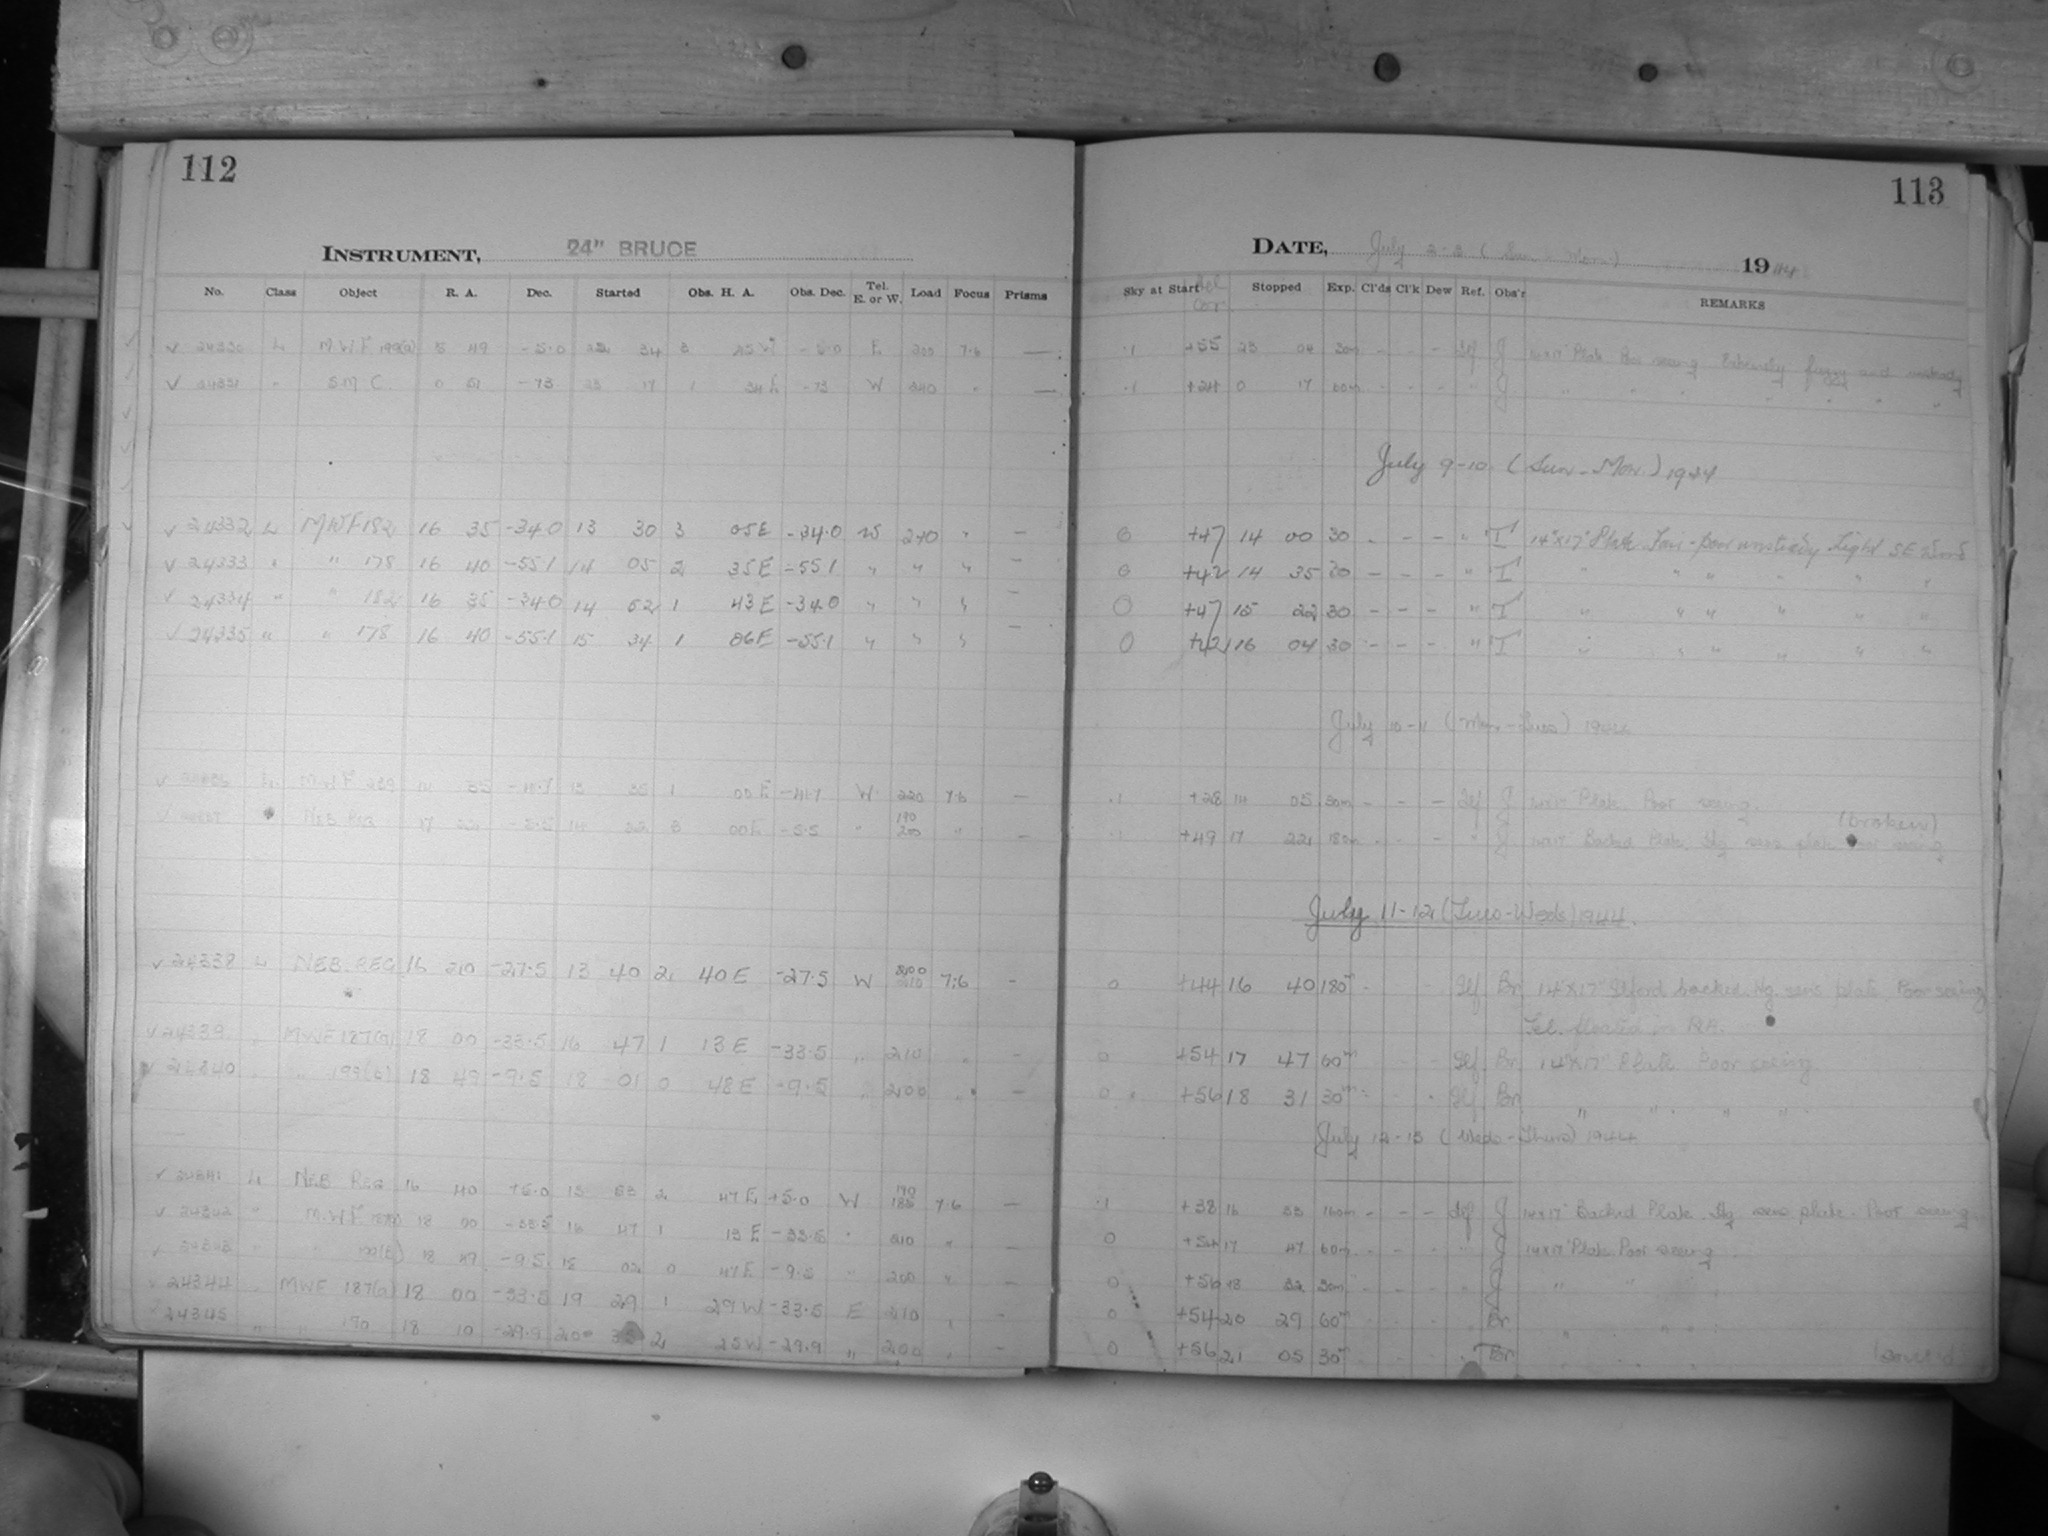 112
INSTRUMENT, 24" BRUCE
No. Class Object R. A. Dec. Started Obs. H. A. Obs. Dec. Tel. E. or W. Load Focus Prisms
24330 L MWF 199(a) 5 49 -5.0 22 34 3 25 W -5.0 E 200 7.6 —
24331 " S.M.C. 0 51 -73 23 17 1 34 E -73 W 240 " —
24332 L MWF 182 16 35 -34.0 13 30 3 05 E -34.0 W 240 " —
24333 " " 178 16 40 -55.1 14 05 2 35 E -55.1 " " " —
24334 " " 182 16 35 -34.0 14 52 1 43 E -34.0 " " " —
24335 " " 178 16 40 -55.1 15 34 1 06 E -55.1 " " " —
MWF 35 -41.7 13 35 1 00 E -41.7 W 220 7.6 —
NEB REG 17 22 -5.5 14 22 3 00 E -5.5 " 190 200 " —
24338 L NEB. REG 16 20 -27.5 13 40 2 40 E -27.5 W 200 210 7.6 -
24339 " MWF 187(a) 18 00 -33.5 16 47 1 13 E -33.5 " 210 " -
24340 " " 199(b) 18 49 -9.5 18 01 0 48 E -9.5 " 200 " -
24341 L NEB REG 16 40 +5.0 13 53 2 47 E +5.0 W 190 7.6 —
24342 " M.W.F 187(a) 18 00 -33.5 16 47 1 13 E -33.5 " 210 " —
24343 " " 199(b) 18 49 -9.5 18 02 0 47 E -9.5 " 200 " —
24344 " MWF 187(a) 18 00 -33.5 19 29 1 29 W -33.5 E 210 " -
24345 " " 190 18 10 -29.9 20 35 2 25 W -29.9 " 200 " -
113
DATE, July 2-3 (Sun - Mon.) 1944
Sky at Start Stopped Exp. Cl'ds Cl'k Dew Ref. Obs'r REMARKS
.1 +55 23 04 30m - - - Ilf J 14x17 Plate Poor seeing. Extremely fuzzy and unsteady
.1 +24 0 17 60m - - - " J " " " " " "
July 9-10 (Sun - Mon.) 1944
0 +47 14 00 30 - - - " T 14"x17" Plate Fair - poor unsteady Light SE Wind
0 +42 14 35 30 - - - " T " " " " " "
0 +47 15 22 30 - - - " T " " " " " "
0 +42 16 04 30 - - - " T " " " " " "
July 10-11 (Mon - Tues) 1944
.1 +28 14 05 30m - - - Ilf J 14x17 Plate. Poor seeing.
(broken)
.1 +49 17 22 180m - - - " J 14x17 Backed Plate. Hg sens plate Poor seeing
July 11-12 (Tues-Weds) 1944.
0 +44 16 40 180m - - Ilf. Br 14"x17" Ilford backed Hg. sens plate Poor seeing
Tel. floated in RA.
0 +54 17 47 60m - - Ilf. Br 14"x17" Plate Poor seeing
0 +56 18 31 30m - - - Ilf. Br " " " "
July 12-13 (Weds - Thurs) 1944
.1 +38 16 33 160m - - - Ilf J 14x17" Backed Plate. Hg sens plate. Poor seeing
0 +54 17 47 60m - - - " J 14x17" Plate. Poor seeing
0 +56 18 32 30m - - - " J " "
0 +54 20 29 60m - - - " Br " " "
0 +56 21 05 30m - - - " Br " " "